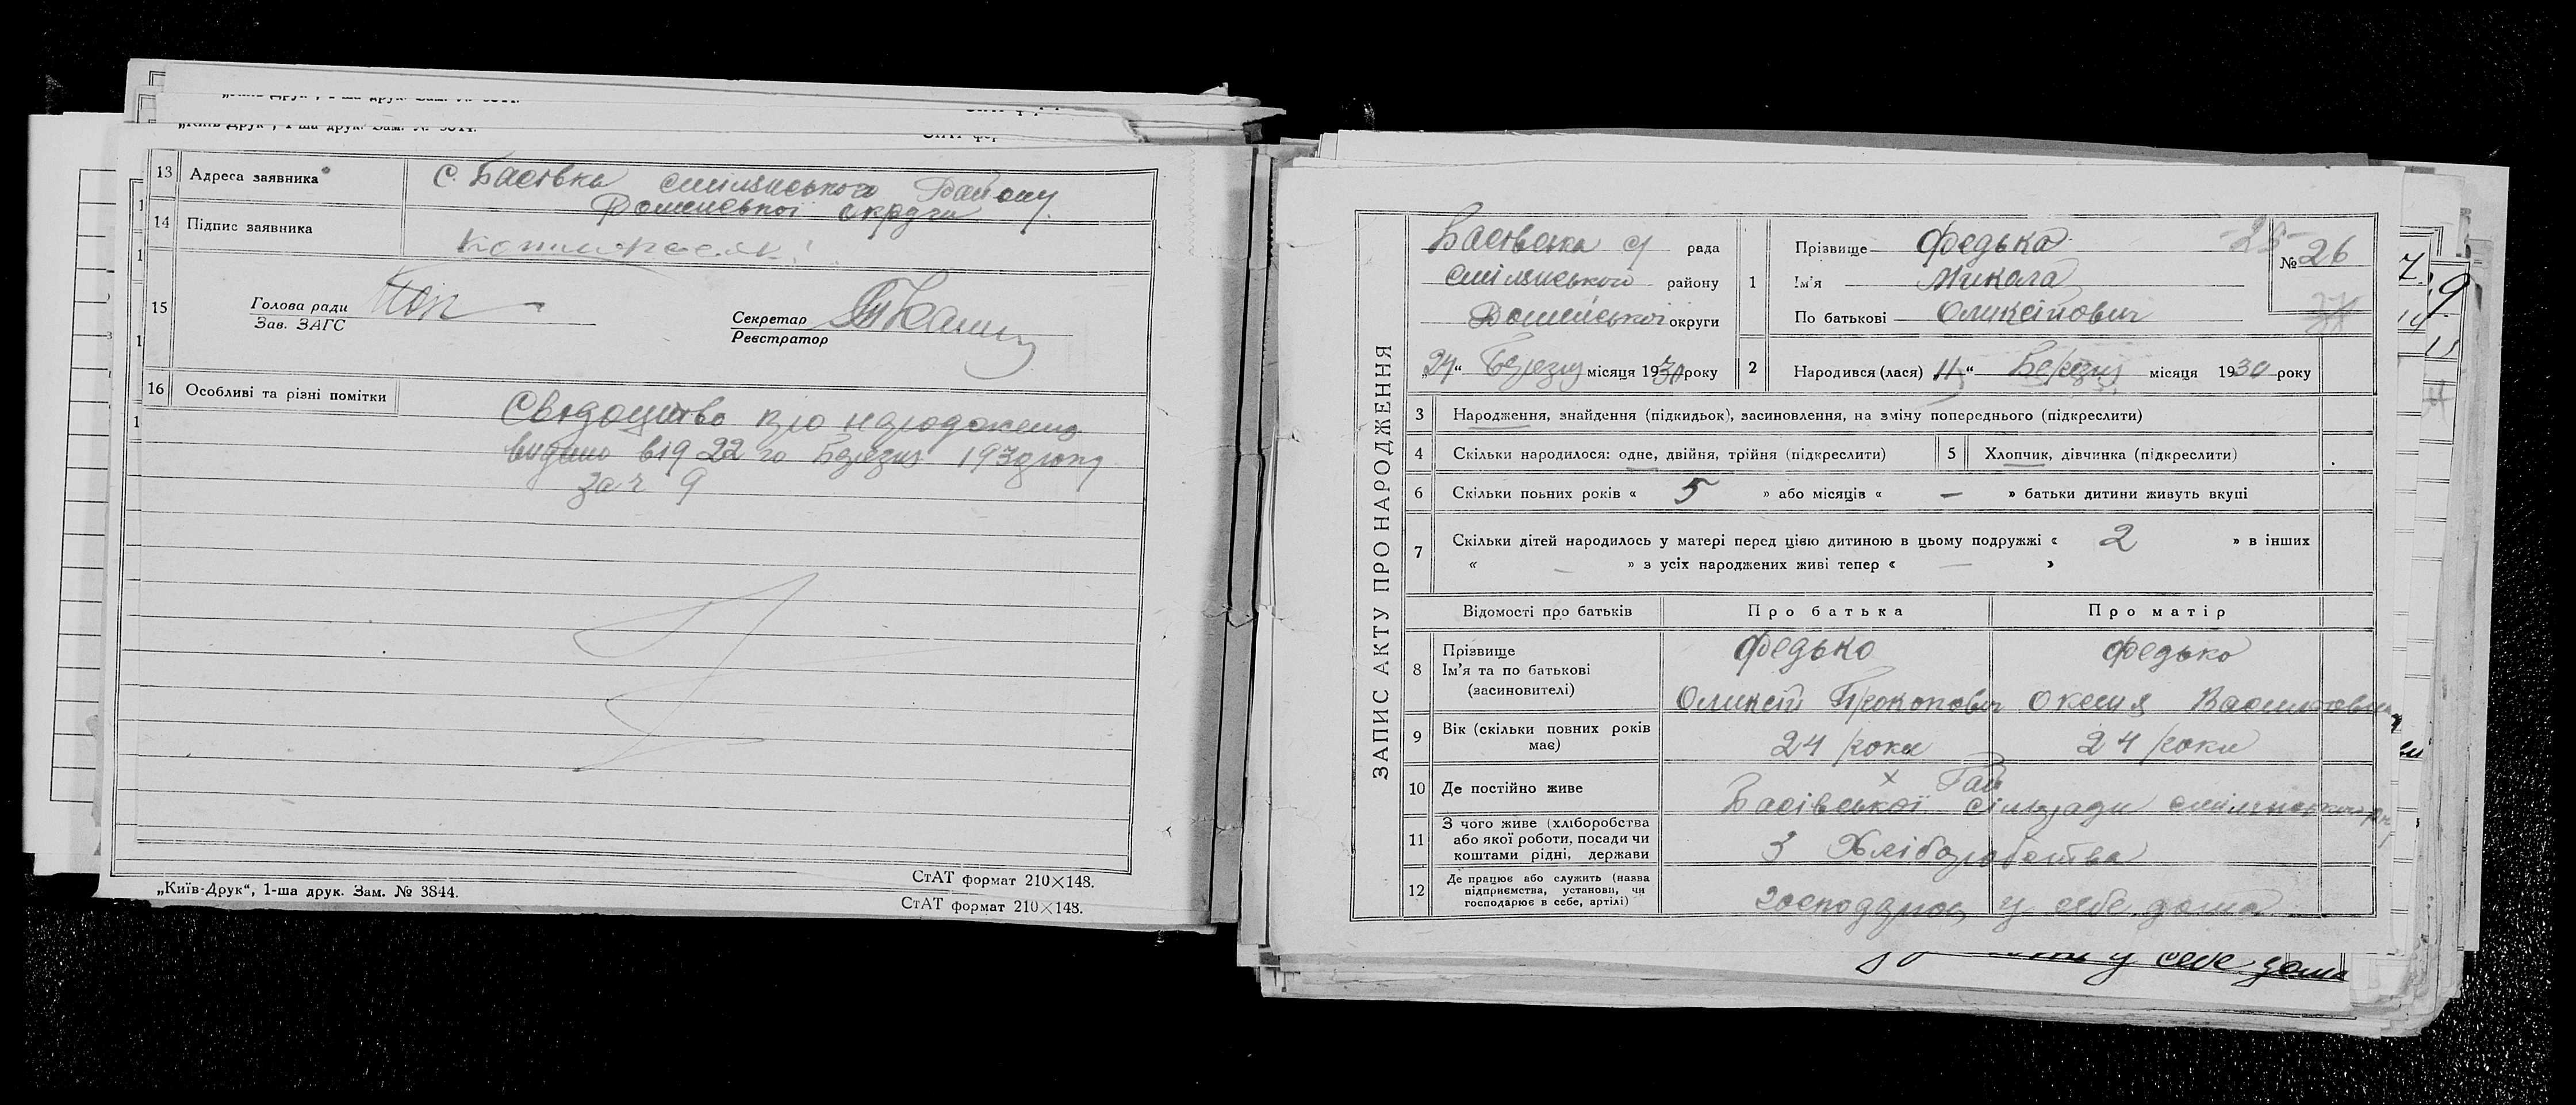 13 Адреса заявника С. Басівка смілянського Району
Роменської округи
14 Підпис заявника
15 Голова ради
Зав. ЗАГС
Секретар
Реєстратор
16 Особливі та різні помітки
Свідоцтво про народження
видано від 22 го Березня 1930 року
за ч 9
„Київ-Друк“, 1-ша друк. Зам. № 3844.
СтАТ формат 210×148.
СтАТ формат 210×148.
ЗАПИС АКТУ ПРО НАРОДЖЕННЯ
Басівська с/ рада
смілянського району
Роменської округи
„24“ Березня місяця 1930 року
1 Прізвище Федька
Ім'я Микола
По батькові Оликсійович
№ 26
2 Народився (лася) „ “ Березня місяця 1930 року
3 Народження, знайдення (підкидьок), засиновлення, на зміну попереднього (підкреслити)
4 Скільки народилося: одне, двійня, трійня (підкреслити)
5 Хлопчик, дівчинка (підкреслити)
6 Скільки повних років « 5 » або місяців « — » батьки дитини живуть вкупі
7 Скільки дітей народилось у матері перед цією дитиною в цьому подружжі « 2 » в інших
« — » з усіх народжених живі тепер « — »
Відомості про батьків Про батька Про матір
8 Прізвище Федько Федько
Ім'я та по батькові
(засиновителі) Оликсій Прокопович Оксния Васильовна
9 Вік (скільки повних років має) 24 роки 24 роки
10 Де постійно живе х Гай
Басівської сільради смілянського рн
11 З чого живе (хліборобства
або якої роботи, посади чи
коштами рідні, держави З Хліборобства
12 Де працює або служить (назва
підприємства, установи, чи
господарює в себе, артілі) у себе дома
у себе дома